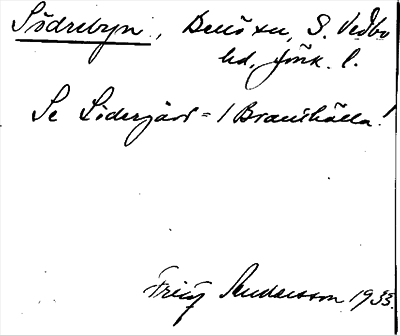 Södrebyn, Bellö sn, S. Vedbo
hd, Jönk. l.
Se Södergård = / Branthälla!
Fritz Gustavsson 1933.